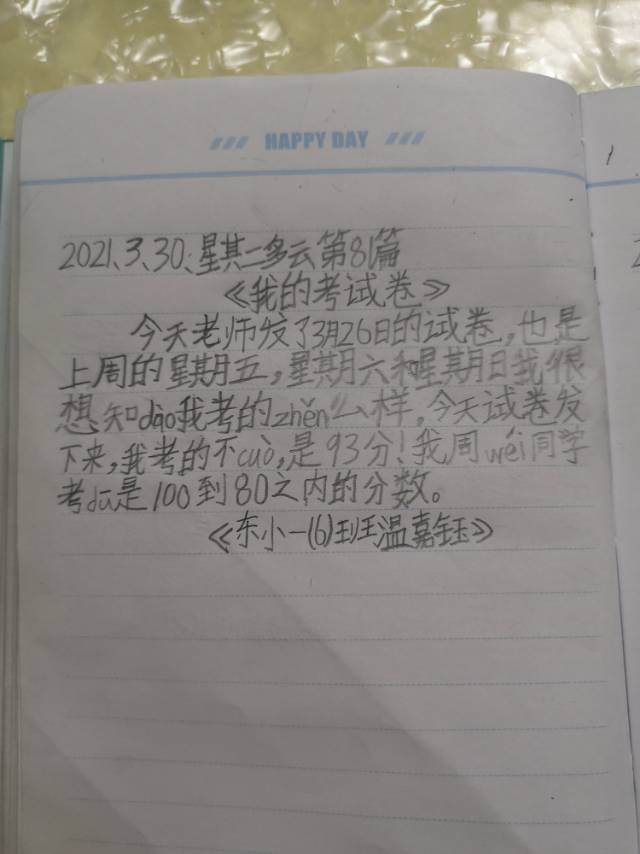 HAPPY DAY
2021、3、30、星其二多云第81篇
《我的考试卷》
今天老师发了3月26日的试卷,也是
上周的星期五,星期六和星期日我很
想知dào我考的zhěn么样,今天试卷发
下来,我考的不cuò,是93分!我周wéi同学
考dū是100到80之内的分数。
《东小一(6)班温嘉钰》